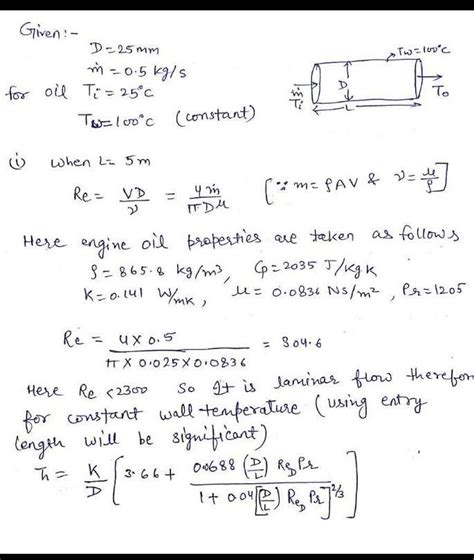 Given:-
D=25mm
ṁ = 0.5 kg/s
for oil Ti = 25°C
Tw=100°C (constant)
Tw=100°C
D
ṁ
Ti
L
To
(i) when L= 5m
Re = VD/ν = 4ṁ/πDμ [∵ m=ρAV & ν=μ/ρ]
Here engine oil properties are taken as follows
ρ = 865.8 kg/m³, Cp=2035 J/kgK
K=0.141 W/mK, μ = 0.0836 Ns/m², Pr=1205
Re = 4 X 0.5 / π X 0.025X0.0836 = 304.6
Here Re <2300 so It is laminar flow therefor
for constant wall-temperature (using entry
length will be significant)
h̄ = K/D [3.66 + 0.0688 (D/L) ReD Pr / 1 + 0.04[(D/L) ReD Pr]^2/3]